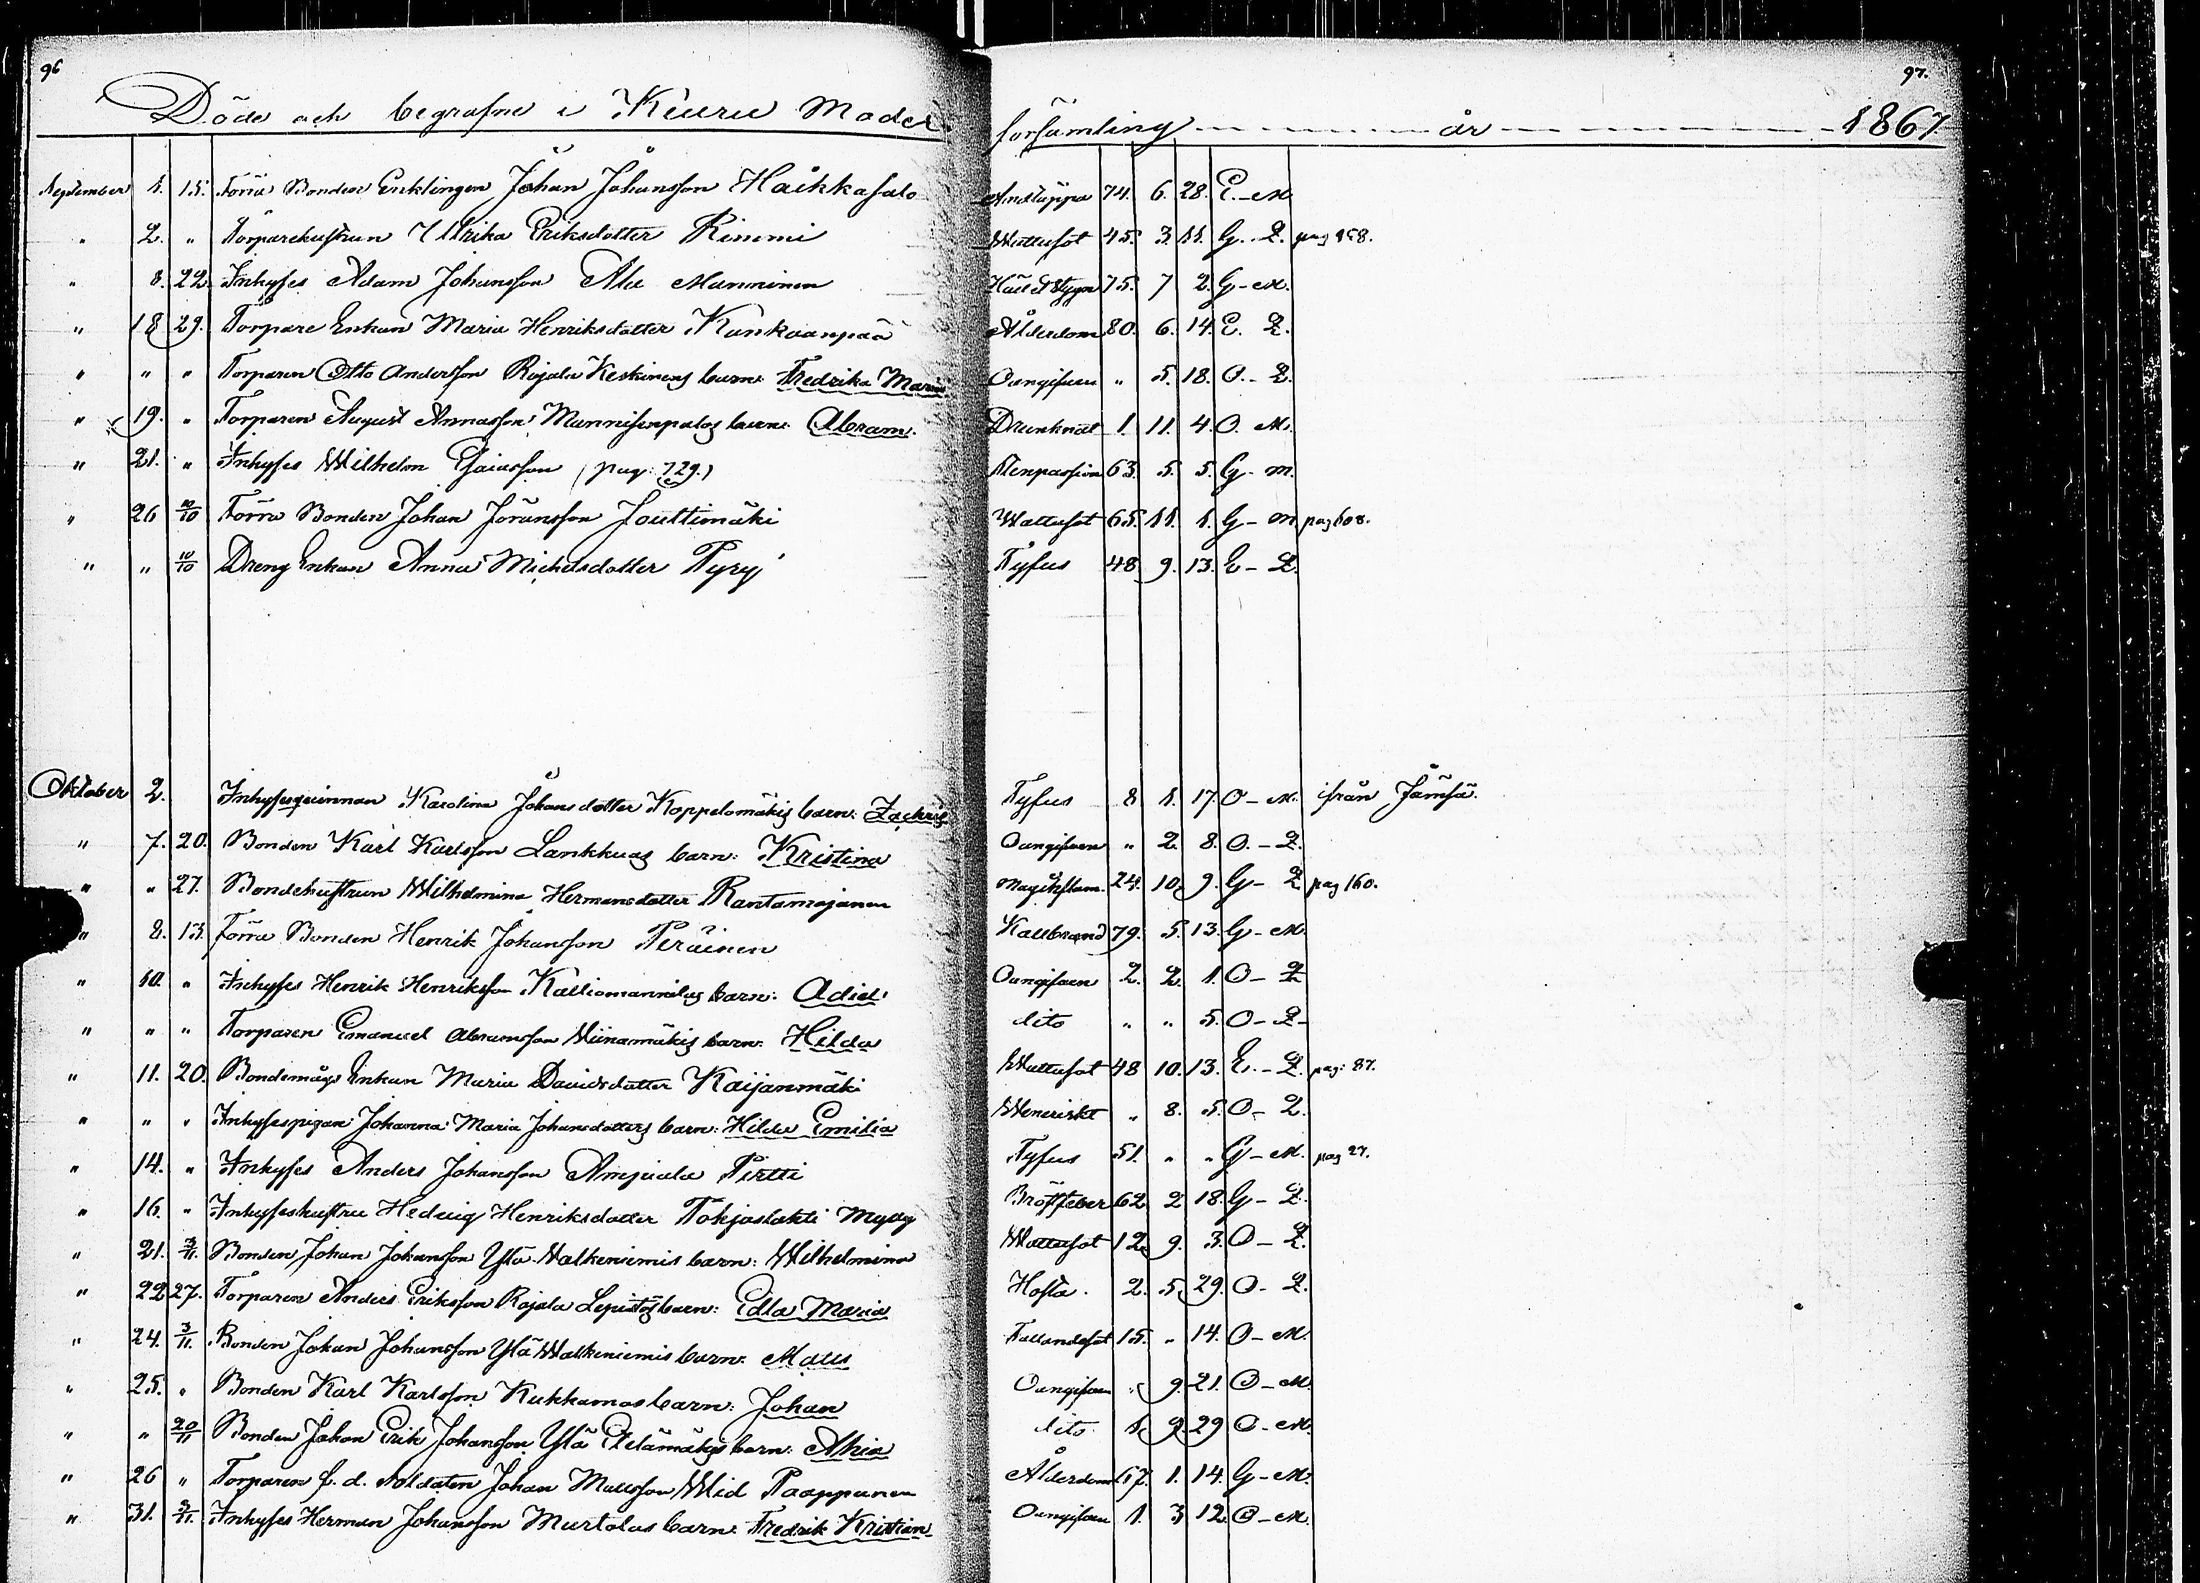 96
97.
Döde och begrafne i Keuru Moder församling år 1867
September 1. 15. Förra Bonden Enklingen Johan Johansson Haikkasalo Andtäppa 74. 6. 28. E. - M.
" 2. " Torparehustrun Ulrika Eriksdotter Rimmi Wattusot 45. 3. 11. G. - Q. pag 958.
" 8. 22. Inhyses Adam Johansson Ala Manninen Håll & Stygn 75. 7 2. G - M.
" 18 29. Torpare Enkan Maria Henriksdotter Kankaanpää Ålderdom 80. 6. 14. E. Q.
" " " Torparen Otto Andersson Rajala Keskinens barn: Fredrika Maria Oangifven " 5. 18. O. - Q.
" 19. " Torparen August Annasson Mannisenpalos barn: Abram. Drunknat 1. 11. 4 O. M.
" 21. " Inhyses Wilhelm Esaiasson (pag: 729.) Stenpassion 63. 5. 5. G - m.
" 26 10/10 Förra Bonden Johan Göransson Jouttimäki Wattusot 65. 11. 1. G - m pag 608.
" " 10/10 Dreng Enkan Anna Michelsdotter Pyry Tyfus 48. 9. 13. E - Q.
Oktober 2. Inhysesqvinnan Karolina Johansdotter Koppelomäkis barn: Zachris Tyfus 8 1. 17. O - M. ifrån Jämsä.
" 7. 20. Bonden Karl Karlsson Lankkuas barn: Kristina Oangifven " 2. 8. O. - Q.
" " 27. Bondehustrun Wilhelmina Hermansdotter Rantamajanen 24. 10. 9. G - Q pag 160.
" 8. 13. Förra Bonden Henrik Johansson Peräinen Kallbrand 79. 5. 13. G - M.
" 10. " Inhyses Henrik Henriksson Kalliomannilas barn: Adiel Oangifven 2. 2. 1. O - Q
" " " Torparen Emanuel Abramsson Wiinamäkis barn: Hilda dito " " 5. O - Q -
" 11. 20. Bondemågs Enkan Maria Davidsdotter Kaijanmäki Wattusot 48 10. 13. E. - Q. pag: 87.
" " " Inhysespigan Johanna Maria Johansdotters barn: Hilda Emilia Weneriskt " 8. 5. O - Q.
" 14. " Inhyses Anders Johansson Ampiala Pirtti Tyfus 51. " " G - M. pag 27.
" 16. " Inhyseshustru Hedvig Henriksdotter Pohjoslahti Mylly Bröstfeber 62. 2 18. G - Q.
" 21. 3/11. Bonden Johan Johansson Ylä Walkeniemis barn: Wilhelmina Wattusot 12. 9. 3. O - Q.
" 22 27. Torparen Anders Eriksson Rajala Lepistös barn: Edla Maria Hosta. 2. 5. 29. O - Q.
" 24. 3/11. Bonden Johan Johansson Ylä Walkeniemis barn: Matts Fallandesot 15. " 14. O - M.
" 25. " Bonden Karl Karlsson Kukkamas barn: Johan Oangifven " 9. 21. O - M.
" " 20/11 Bonden Johan Erik Johansson Ylä Etelämäkis barn: Ahia dito 1. 9. 29 O - M.
" 26 " Torparen f. d. Soldaten Johan Mattsson Wid Paappanen Ålderdom 67. 1. 14. G - M.
" 31. 3/11. Inhyses Herman Johansson Murtolas barn: Fredrik Kristian Oangifven 1. 3 12. O - M.